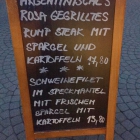 ARGENTINISCHES
ROSA GEGRILLTES
RUMP STEAK MIT
SPARGEL UND
KARTOFFELN 17,80
SCHWEINEFILET
IM SPECKMANTEL
MIT FRISCHEN
SPARGEL MIT
KARTOFFELN 13,80